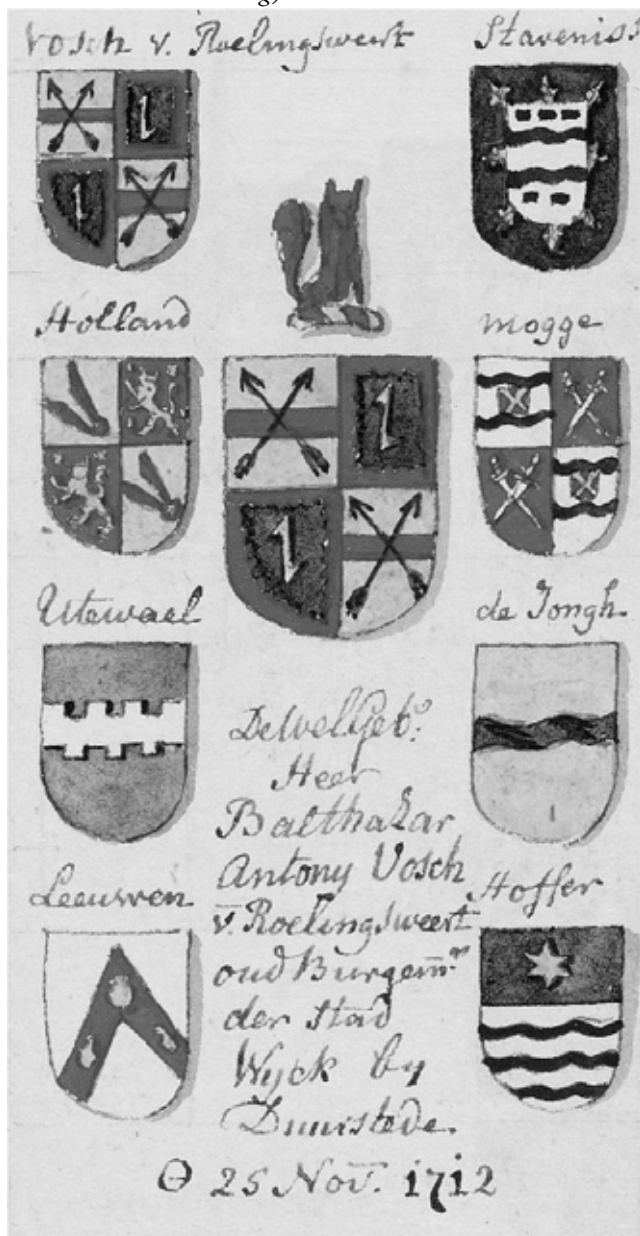 Vosch v. Roelingsweert
Stavenisse
Holland
Mogge
Utewael
de Jongh
Leeuwen
Hoffer
De WelGeb:
Heer
Balthazar
Antony Vosch
v. Roelingsweert
oud Burgem.
der Stad
Wyck by
Duurstede
25 Nov. 1712